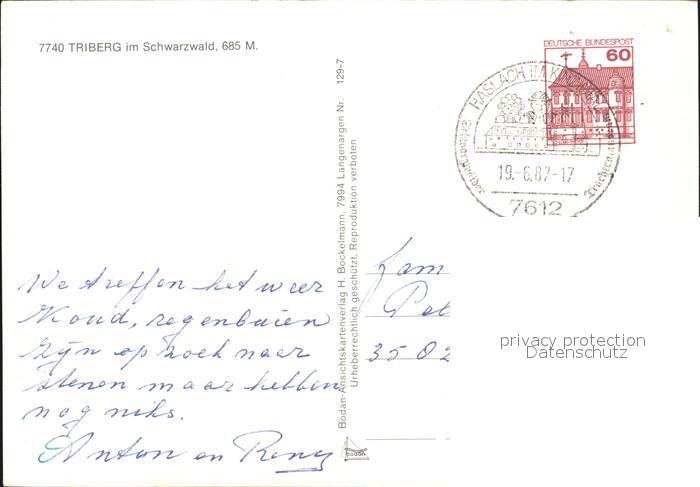 7740 TRIBERG im Schwarzwald, 685 M.
We treffen het weer
Koud, regenbuien
zijn op zoek naar
stenen maar hebben
nog niks.
Anton en Rony
Bodan-Ansichtskartenverlag H. Bockelmann, 7994 Langenargen Nr. 129-7
Urheberrechtlich geschützt, Reproduktion verboten
bodan
DEUTSCHE BUNDESPOST
60
HASLACH IM
19.-6.87-17
7612
Fam
Pel
3502
privacy protection
Datenschutz